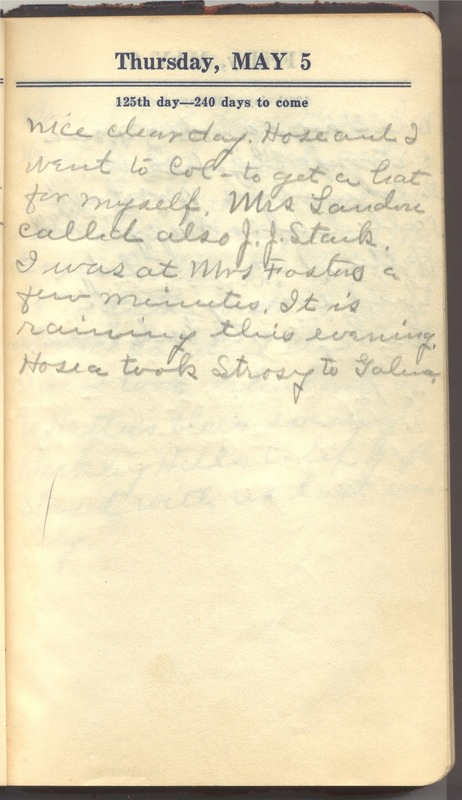 Thursday, MAY 5
125th day—240 days to come
Nice clear day. Hosea and I
went to Col - to get a hat
for myself. Mrs Landon
called also J. J. Stark.
I was at Mrs Fosters a
few minutes. It is
raining this evening.
Hosea took Strosy to Galena